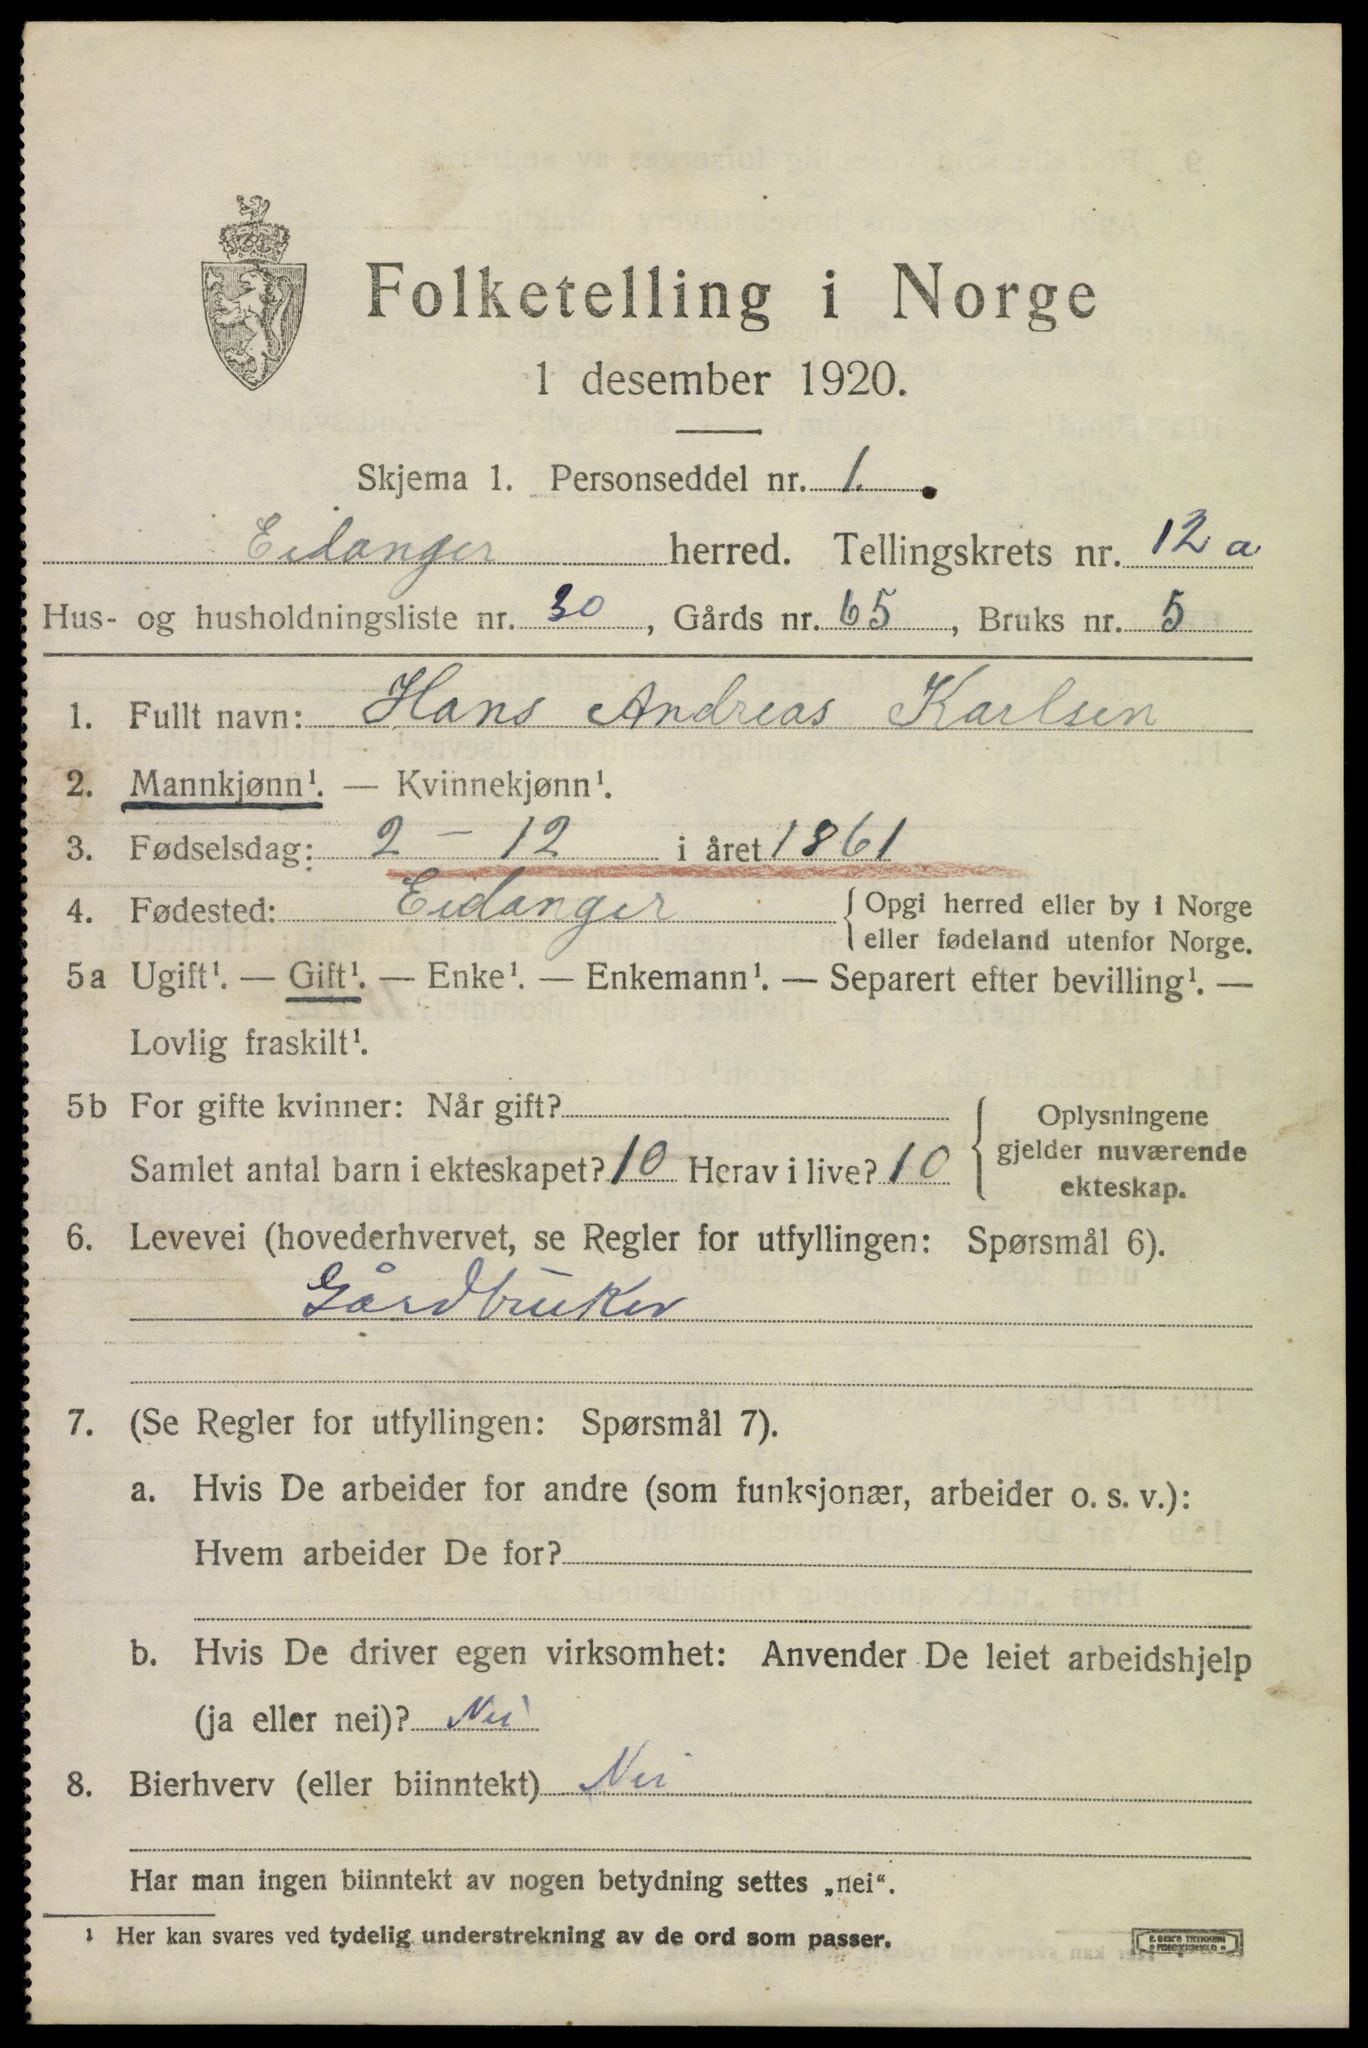 Folketelling i Norge
1 desember 1920.
Skjema 1. Personseddel nr. 1.
Eidanger herred. Tellingskrets nr. 12 a
Hus- og husholdningsliste nr. 30, Gårds nr. 65, Bruks nr. 5
1. Fullt navn: Hans Andreas Karlsen
2. Mannkjønn¹. — Kvinnekjønn¹.
3. Fødselsdag: 2 – 12 i året 1861
4. Fødested: Eidanger { Opgi herred eller by i Norge
eller fødeland utenfor Norge.
5a Ugift¹. — Gift¹. — Enke¹. — Enkemann¹. — Separert efter bevilling¹. —
Lovlig fraskilt¹.
5b For gifte kvinner: Når gift?
Samlet antal barn i ekteskapet? 10 Herav i live? 10
{ Oplysningene
gjelder nuværende
ekteskap.
6. Levevei (hovederhvervet, se Regler for utfyllingen: Spørsmål 6).
Gårdbruker
7. (Se Regler for utfyllingen: Spørsmål 7).
a. Hvis De arbeider for andre (som funksjonær, arbeider o. s. v.):
Hvem arbeider De for?
b. Hvis De driver egen virksomhet: Anvender De leiet arbeidshjelp
(ja eller nei)? Nei
8. Bierhverv (eller biinntekt) Nei
Har man ingen biinntekt av nogen betydning settes „nei“.
¹ Her kan svares ved tydelig understrekning av de ord som passer.